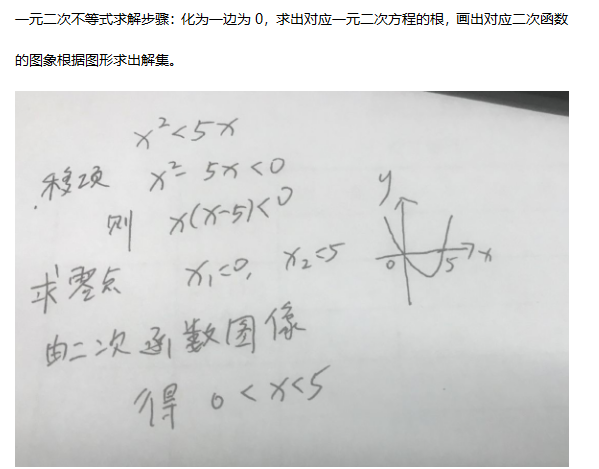 一元二次不等式求解步骤：化为一边为 0，求出对应一元二次方程的根，画出对应二次函数
的图象根据图形求出解集。
x²<5x
移项 x²-5x<0
则 x(x-5)<0
求零点 x₁=0, x₂=5
y
0 5 x
由二次函数图像
得 0<x<5